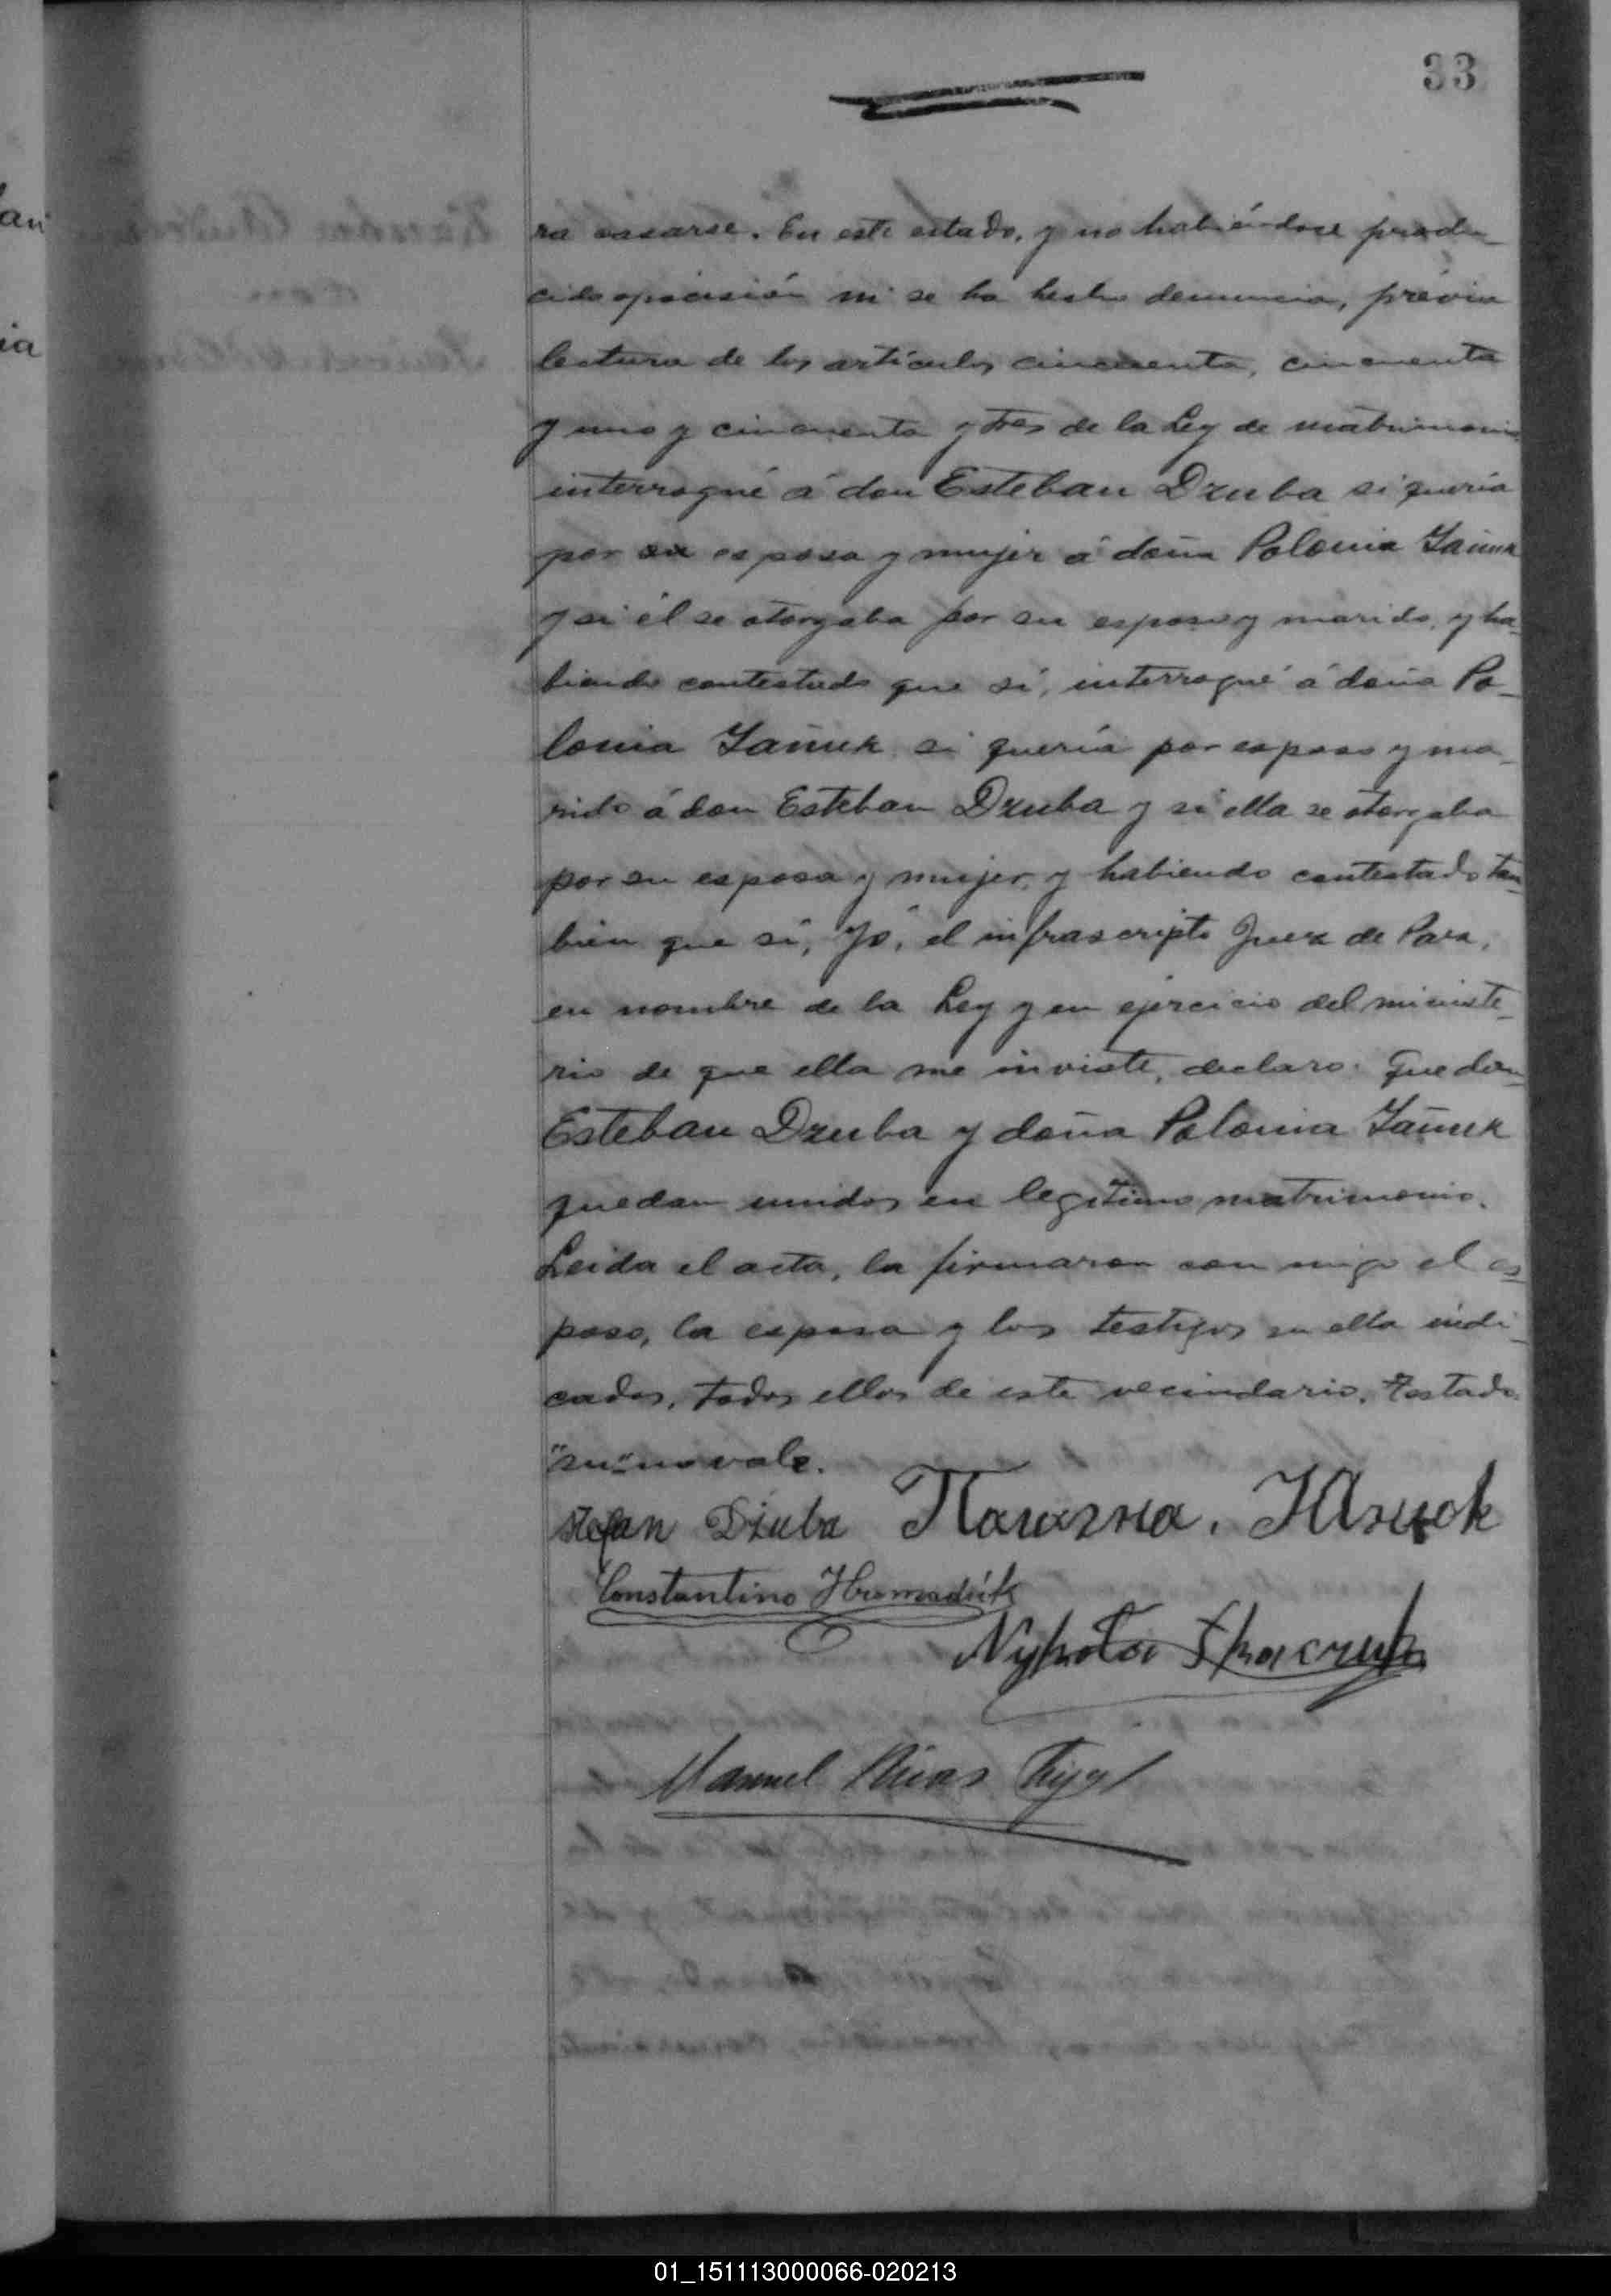 33
ra casarse. En este estado, y no habiéndose produ-
cido oposisión ni se ha hecho denuncia, prévia
lectura de los artículos cincuenta, cincuenta
y uno y cincuenta y tres de la Ley de matrimonio
interrogué á don Esteban Dzuba si quería
por su esposa y mujer á doña Polonia Yañuk
y si él se otorgaba por su esposo y marido, y ha-
biendo contestado que sí, interrogué á doña Po-
lonia Yañuk si quería por esposo y ma-
rido á don Esteban Dzuba y si ella se otorgaba
por su esposa y mujer, y habiendo contestado tam-
bién que sí, Yo, el infrascripto Juez de Paz,
en nombre de la Ley y en ejercicio del ministe-
rio de que ella me inviste, declaro: Que don
Esteban Dzuba y doña Polonia Yañuk
quedan unidos en legítimo matrimonio.
Leida el acta, la firmaron con migo el es-
poso, la esposa y los testigos en ella indi-
cados, todos ellos de este vecindario. Testado
"su" no vale.
Stefan Dziuba
Constantino Hromadiúk
Manuel Rivas
an
ia
01_151113000066-020213